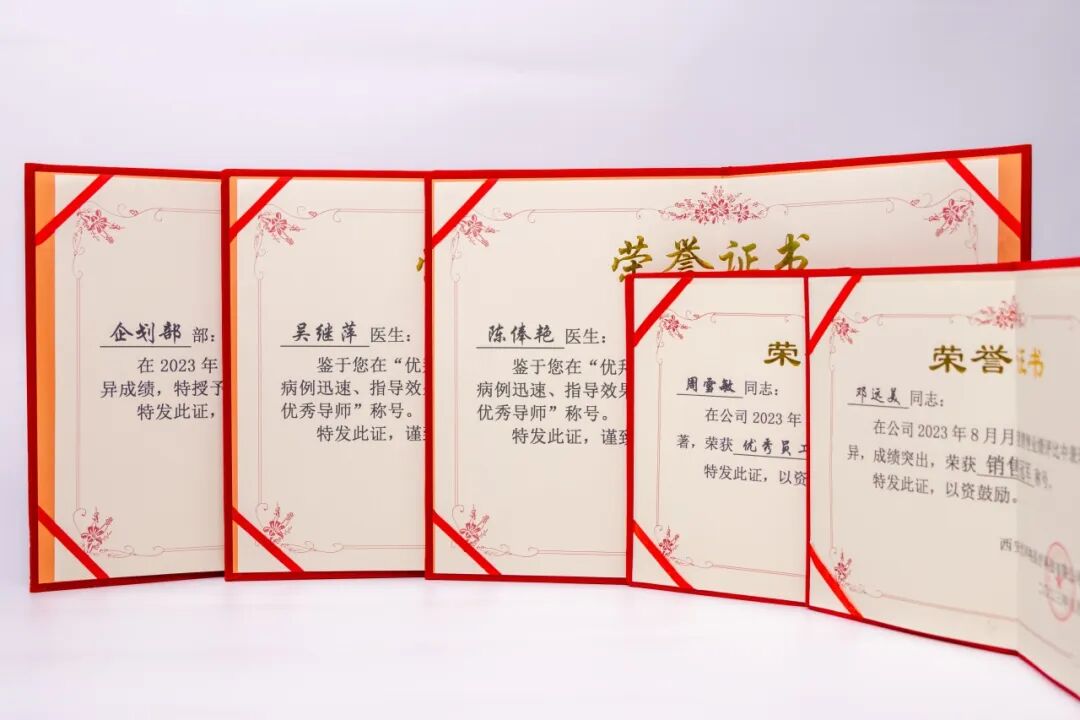 企划部 部:
在 2023 年
异成绩, 特授予
特发此证,
吴继萍 医生:
鉴于您在“优
病例迅速、指导效
优秀导师”称号。
特发此证, 谨
荣誉证书
陈俸艳 医生:
鉴于您在“优拜
病例迅速、指导效果
优秀导师”称号。
特发此证, 谨致
荣
周雪敏 同志:
在公司 2023 年
著, 荣获 优秀员工
特发此证, 以资
荣誉证书
邓远美 同志:
在公司 2023 年 8 月
异, 成绩突出, 荣获 销售冠军 称号。
特发此证, 以资鼓励。
西